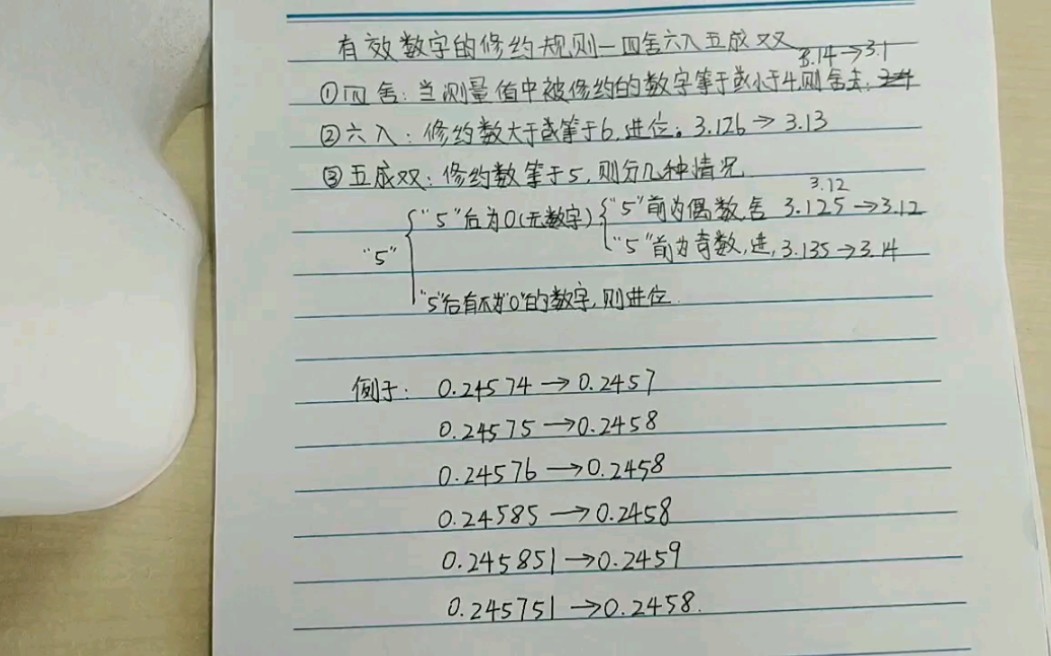 有效数字的修约规则—四舍六入五成双
3.14→3.1
①四舍:当测量值中被修约的数字等于或小于4,则舍去;
②六入:修约数大于或等于6,进位。3.126→3.13
③五成双:修约数等于5,则分几种情况
3.12
"5"后为0(无数字) "5"前为偶数,舍 3.125→3.12
"5"
"5"前为奇数,进,3.135→3.14
"5"后有不为"0"的数字,则进位.
例于: 0.24574→0.2457
0.24575→0.2458
0.24576→0.2458
0.24585→0.2458
0.245851→0.2459
0.245751→0.2458.